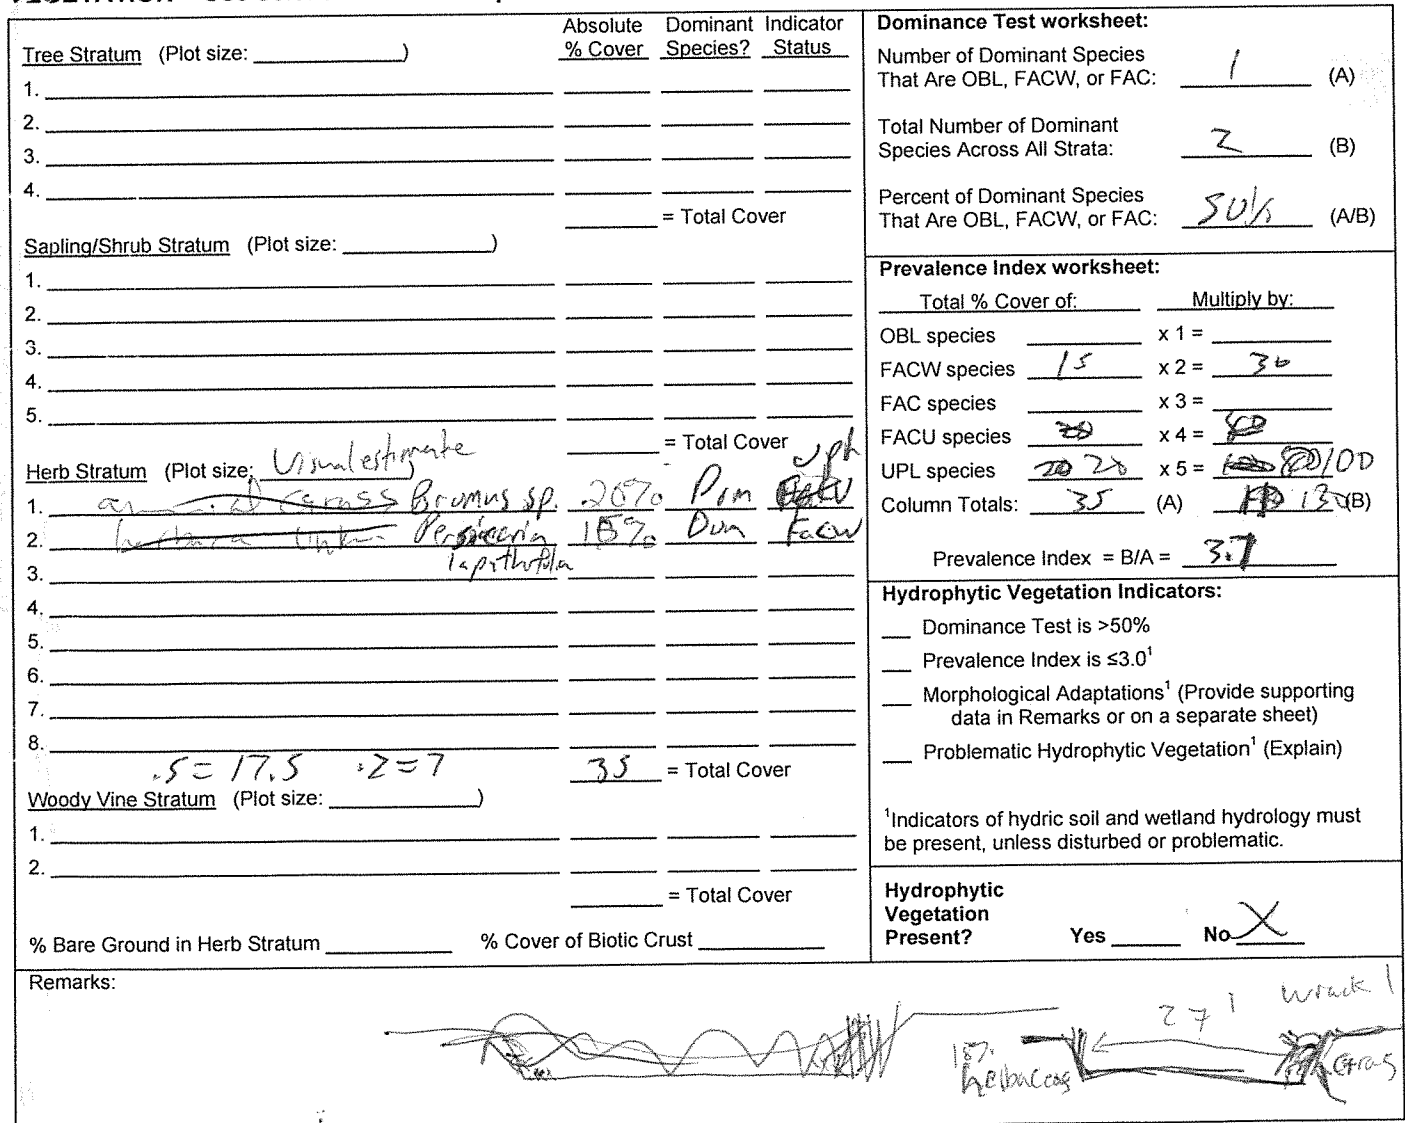 Absolute Dominant Indicator
Tree Stratum (Plot size: ____________) % Cover Species? Status
1.
2.
3.
4.
= Total Cover
Sapling/Shrub Stratum (Plot size: ____________)
1.
2.
3.
4.
5.
= Total Cover
Herb Stratum (Plot size: Visual estimate uph
1. Grass Bromus sp. 20% Dom FACU
2. Persicaria 15% Dom FACW
lapithifolia
3.
4.
5.
6.
7.
8.
.5 = 17.5 .2 = 7 35 = Total Cover
Woody Vine Stratum (Plot size: ____________)
1.
2.
= Total Cover
% Bare Ground in Herb Stratum ____________ % Cover of Biotic Crust ____________
Dominance Test worksheet:
Number of Dominant Species
That Are OBL, FACW, or FAC: 1 (A)
Total Number of Dominant
Species Across All Strata: 2 (B)
Percent of Dominant Species
That Are OBL, FACW, or FAC: 50% (A/B)
Prevalence Index worksheet:
Total % Cover of: Multiply by:
OBL species x 1 =
FACW species 15 x 2 = 30
FAC species x 3 =
FACU species 20 x 4 = 80
UPL species 20 20 x 5 = 100
Column Totals: 35 (A) 130 (B)
Prevalence Index = B/A = 3.7
Hydrophytic Vegetation Indicators:
Dominance Test is >50%
Prevalence Index is ≤3.0¹
Morphological Adaptations¹ (Provide supporting
data in Remarks or on a separate sheet)
Problematic Hydrophytic Vegetation¹ (Explain)
¹Indicators of hydric soil and wetland hydrology must
be present, unless disturbed or problematic.
Hydrophytic
Vegetation
Present? Yes ____ No X
Remarks:
27' Wrack
15%
herbaceous Grass